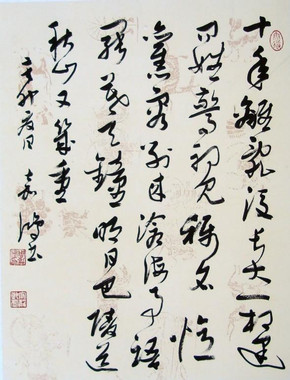 十年離亂後長大一相逢
問姓驚初見稱名憶
舊容別來滄海事語
罷暮天鐘明日巴陵道
秋山又幾重
辛卯夏日 嘉 書